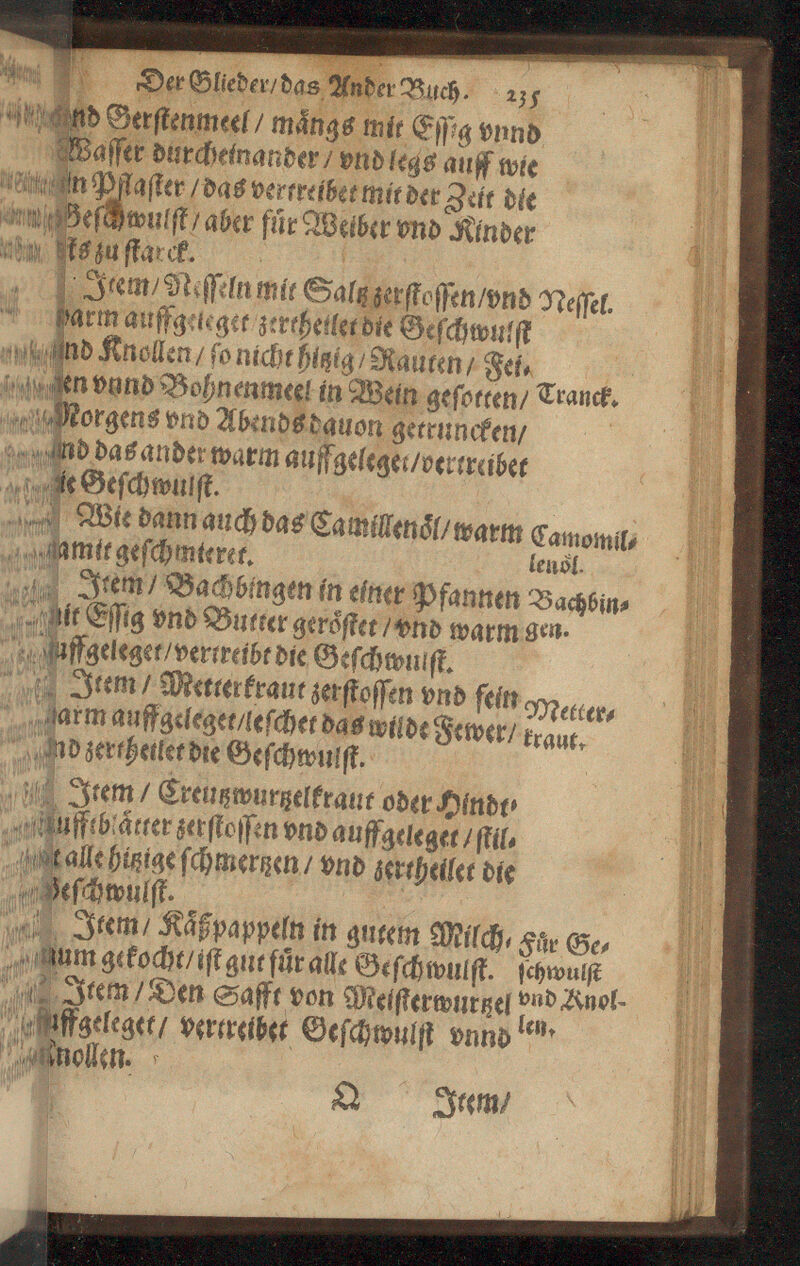 Der Glieder/das Ander Buch. 235
nd Gerſtenmeel / mångs mit Eſſig vnnd
Waſſer durcheinander / vnd legs auff wie
in Pflaſter / das vertreibet mit der Zeit die
Geſchwulſt / aber für Weiber vnd Kinder
iſts zu ſtarck.
Item / Neſſeln mit Saltz zerſtoſſen / vnd Neſſel.
warm auffgeleget zertheilet die Geſchwulſt
vnd Knollen / ſo nicht hitzig / Rauten / Fei⸗
gen vnnd Bohnenmeel in Wein geſotten / Tranck.
Morgens vnd Abends dauon getruncken /
vnd das ander warm auffgeleget / vertreibet
die Geſchwulſt.
Wie dann auch das Camillenöl / warm Camomil⸗
damit geſchmieret. lenöl.
Item / Bachbingen in einer Pfannen Bachbin⸗
mit Eſſig vnd Butter geröſtet / vnd warm gen.
auffgeleget / vertreibt die Geſchwulſt.
Item / Metterkraut zerſtoſſen vnd fein Metter⸗
warm auffgeleget / leſchet das wilde Fewer / kraut.
vnd zertheilet die Geſchwulſt.
Item / Creutzwurtzelkraut oder Hindt⸗
läufftblåtter zerſtoſſen vnd auffgeleget / ſtil⸗
let alle hitzige ſchmertzen / vnd zertheilet die
Geſchwulſt.
Item / Kåßpappeln in gutem Milch⸗ Für Ge⸗
raum gekocht / iſt gut für alle Geſchwulſt. ſchwulſt
Item / Den Safft von Meiſterwurtzel vnd Knol-
auffgeleget / vertreibet Geſchwulſt vnnd len.
Knollen.
Q Item /